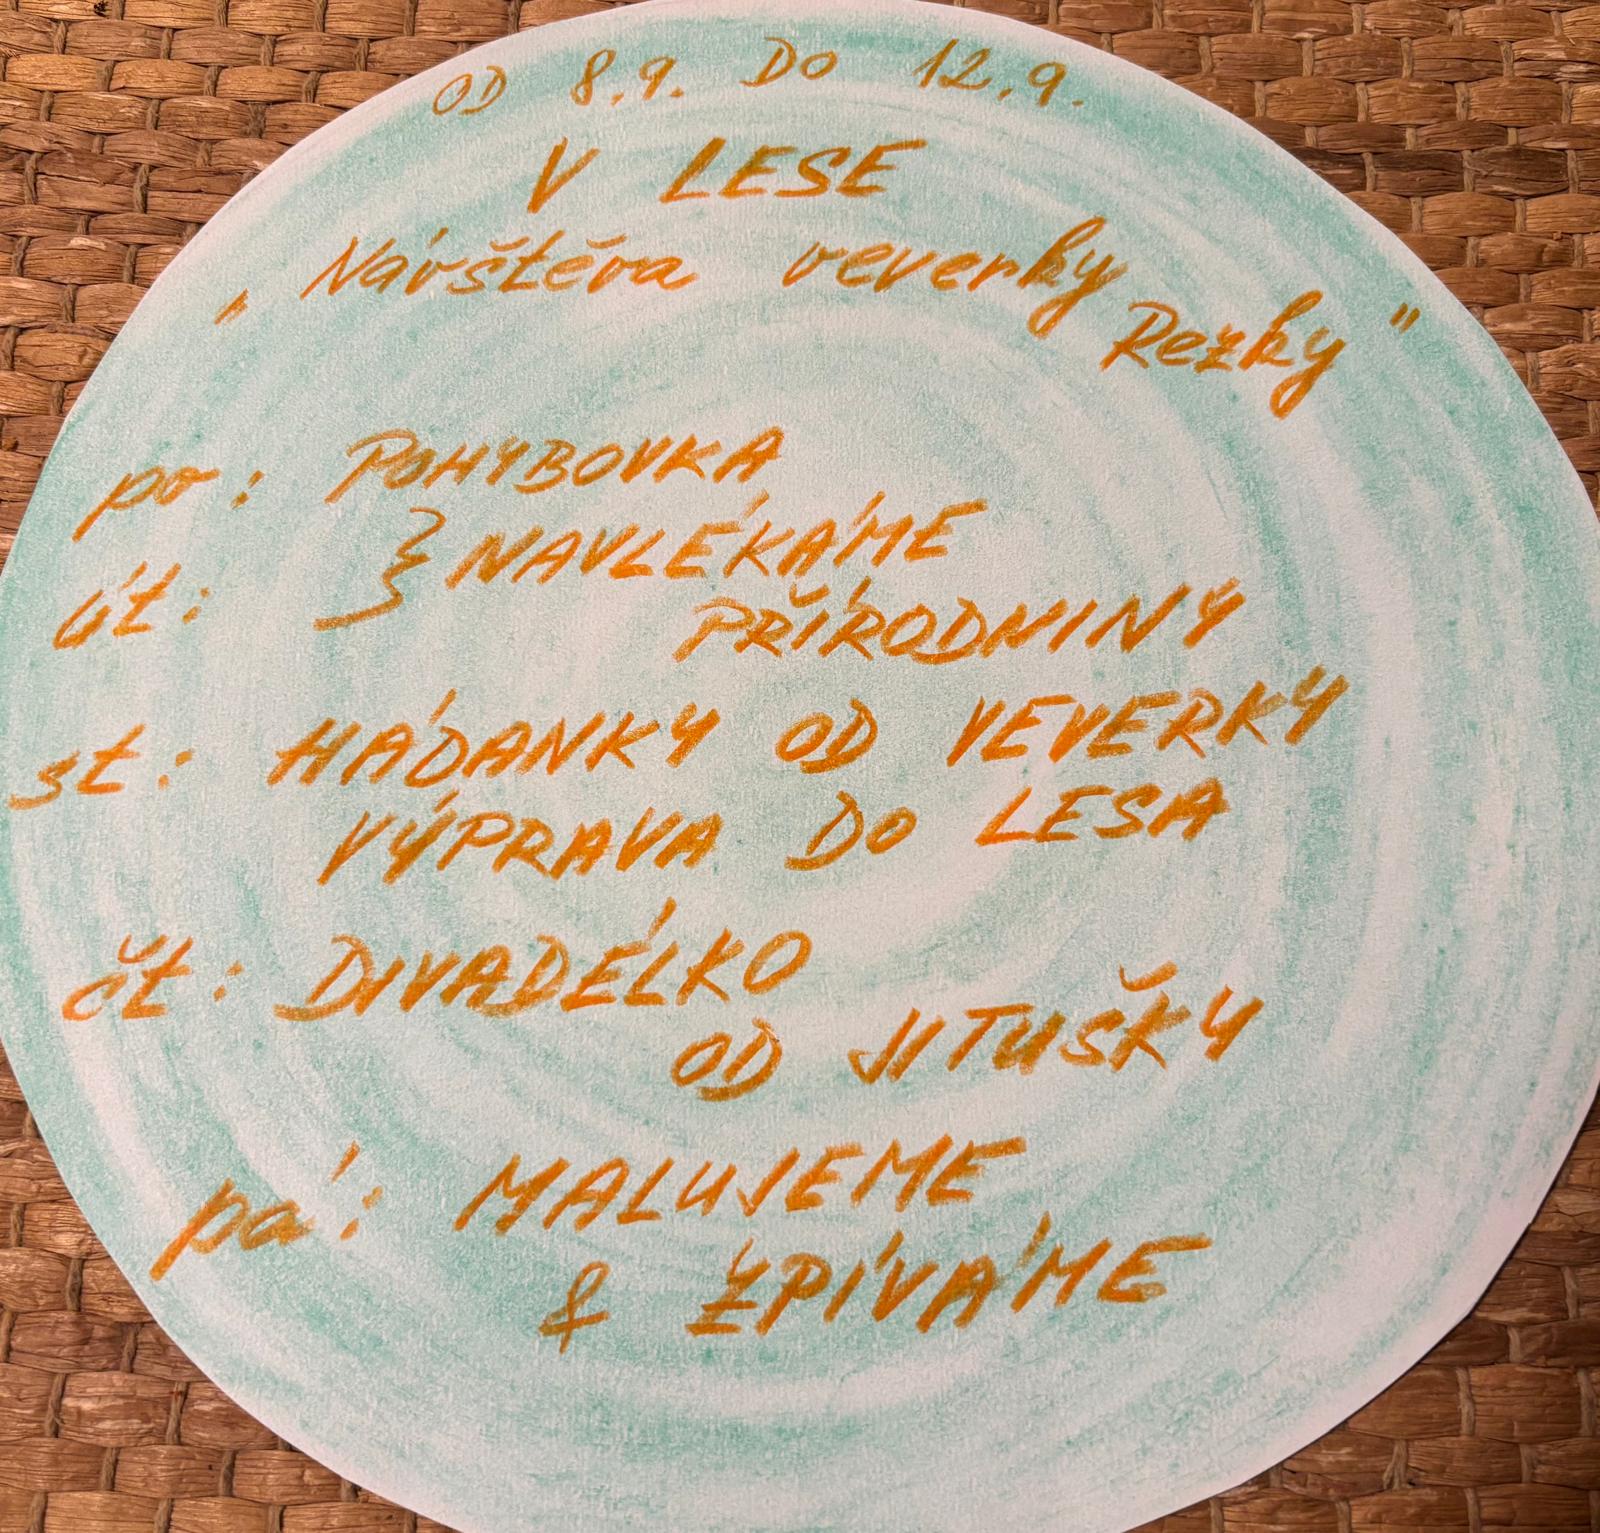 OD 8.9. DO 12.9.
V LESE
„Návštěva veverky
Rezky"
po: POHYBOVKA
út: } NAVLÉKÁME
PŘÍRODNINY
st: HÁDANKY OD VEVERKY
VÝPRAVA DO LESA
čt: DIVADÉLKO
OD JITUŠKY
pá: MALUJEME
& ZPÍVÁME